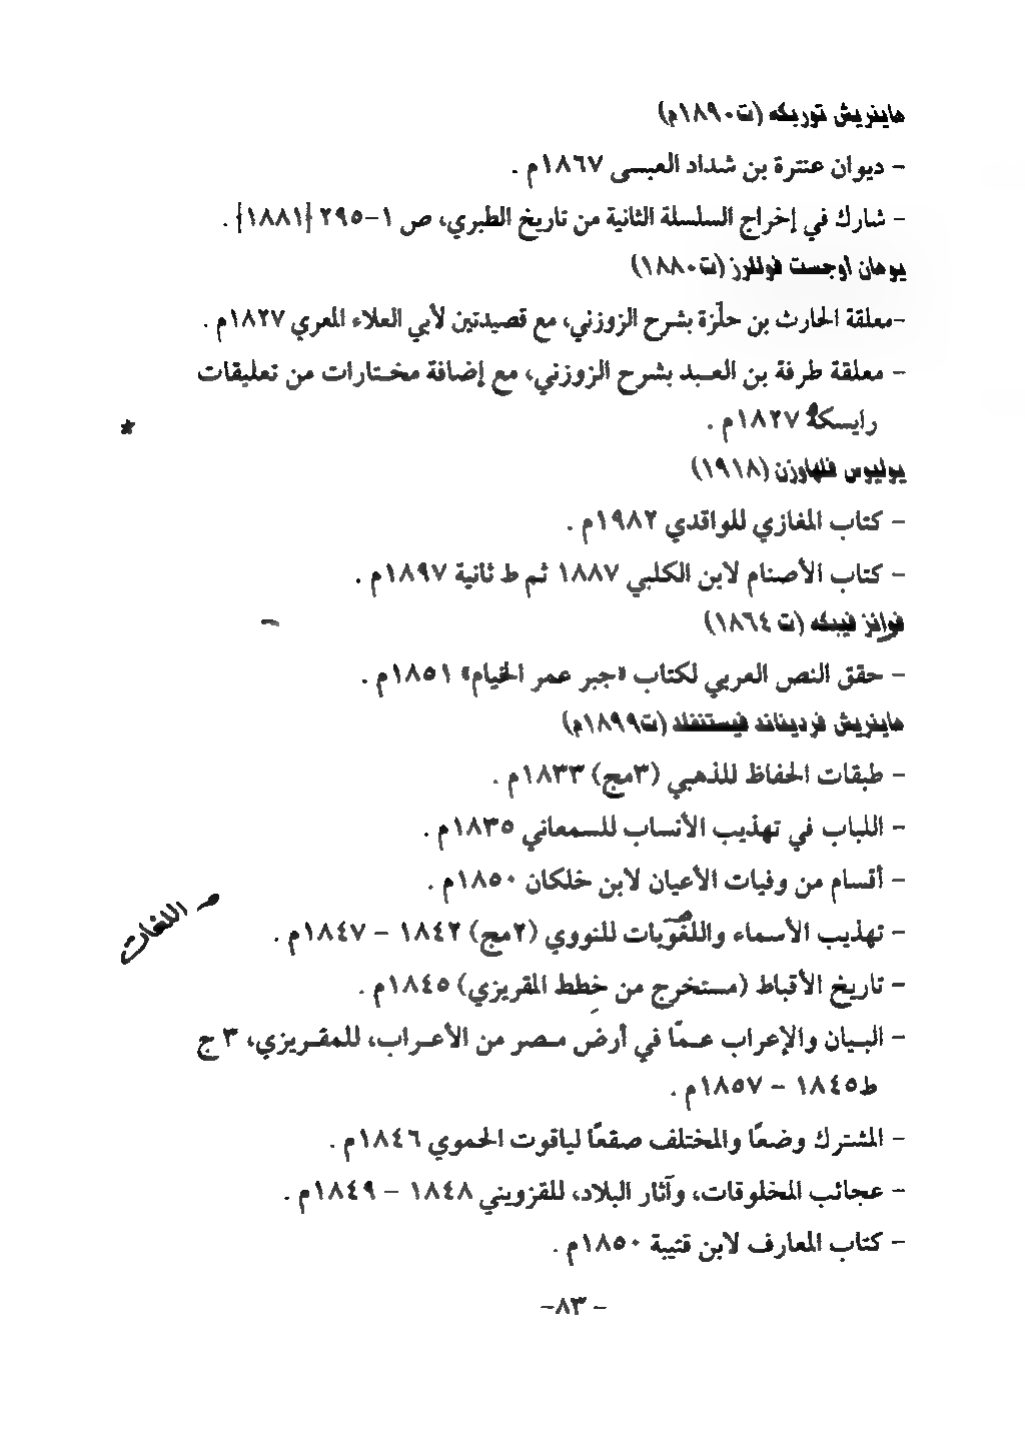 هاينريش توربكه (ت١٨٩٠م)
- ديوان عنترة بن شداد العبسى ١٨٦٧م .
- شارك في إخراج السلسلة الثانية من تاريخ الطبري، ص ١-٢٩٥ {١٨٨١} .
يوهان أوجست فوللرز (ت١٨٨٠)
-معلقة الحارث بن حلّزة بشرح الزوزني، مع قصيدتين لأبي العلاء المعري ١٨٢٧م .
- معلقة طرفة بن العبد بشرح الزوزني، مع إضافة مختارات من تعليقات
رايسكه ١٨٢٧م .
*
يوليوس فلهاوزن (١٩١٨)
- كتاب المغازي للواقدي ١٩٨٢م .
- كتاب الأصنام لابن الكلبي ١٨٨٧ ثم ط ثانية ١٨٩٧م .
فرانز فيبكه (ت ١٨٦٤)
- حقق النص العربي لكتاب «جبر عمر الخيام» ١٨٥١م .
هاينريش فرديناند فيستنفلد (ت١٨٩٩م)
- طبقات الحفاظ للذهبي (٣مج) ١٨٣٣م .
- اللباب في تهذيب الأنساب للسمعاني ١٨٣٥م .
- أقسام من وفيات الأعيان لابن خلكان ١٨٥٠م .
- تهذيب الأسماء واللغويات للنووي (٢مج) ١٨٤٢ - ١٨٤٧م .
اللغات
- تاريخ الأقباط (مستخرج من خِطط المقريزي) ١٨٤٥م .
- البيان والإعراب عمّا في أرض مصر من الأعراب، للمقريزي، ٣ ج
ط١٨٤٥ - ١٨٥٧م .
- المشترك وضعًا والمختلف صقعًا لياقوت الحموي ١٨٤٦م .
- عجائب المخلوقات، وآثار البلاد، للقزويني ١٨٤٨ - ١٨٤٩م .
- كتاب المعارف لابن قتيبة ١٨٥٠م .
-٨٣-